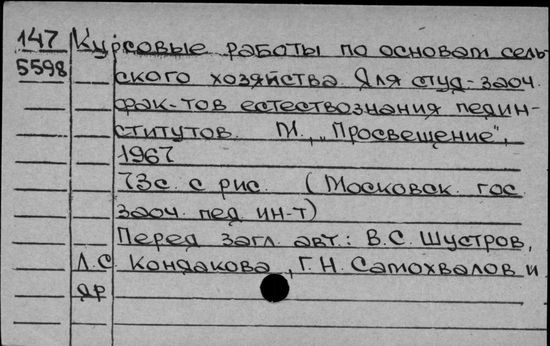 147 Курсовые работы по основам сель-
5598 ского хозяйства Для студ-заоч.
фак-тов естествознания педин-
ститутов. М., "Просвещение",
1967
73с. с рис. (Московск. гос.
заоч. пед. ин-т)
Перед загл. авт.: В.С. Шустров,
Л.С. Кондакова, Г.Н. Самохвалов и
др